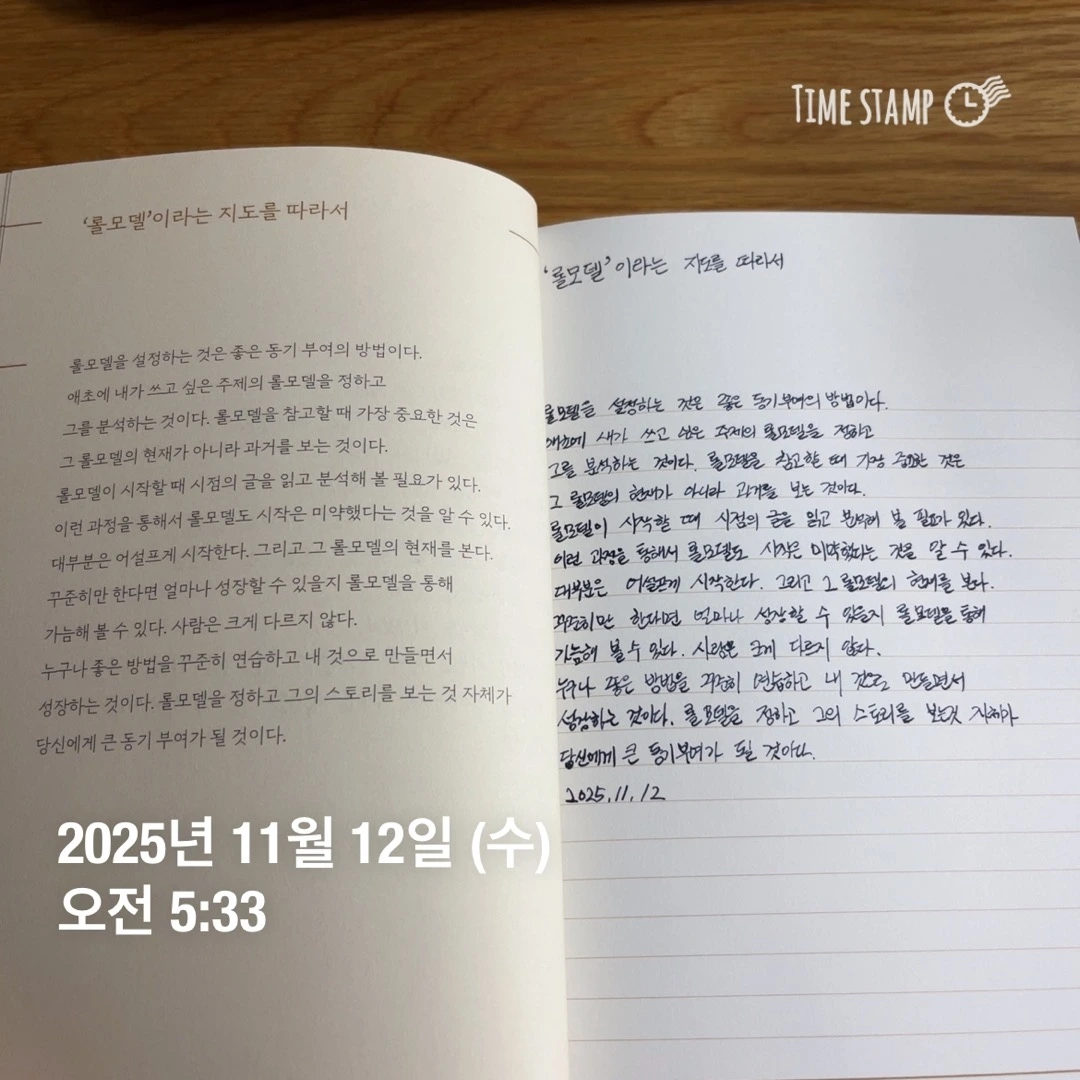 TIME STAMP
'롤모델'이라는 지도를 따라서
롤모델을 설정하는 것은 좋은 동기 부여의 방법이다.
애초에 내가 쓰고 싶은 주제의 롤모델을 정하고
그를 분석하는 것이다. 롤모델을 참고할 때 가장 중요한 것은
그 롤모델의 현재가 아니라 과거를 보는 것이다.
롤모델이 시작할 때 시점의 글을 읽고 분석해 볼 필요가 있다.
이런 과정을 통해서 롤모델도 시작은 미약했다는 것을 알 수 있다.
대부분은 어설프게 시작한다. 그리고 그 롤모델의 현재를 본다.
꾸준히만 한다면 얼마나 성장할 수 있을지 롤모델을 통해
가늠해 볼 수 있다. 사람은 크게 다르지 않다.
누구나 좋은 방법을 꾸준히 연습하고 내 것으로 만들면서
성장하는 것이다. 롤모델을 정하고 그의 스토리를 보는 것 자체가
당신에게 큰 동기 부여가 될 것이다.
'롤모델'이라는 지도를 따라서
롤모델을 설정하는 것은 좋은 동기부여의 방법이다.
애초에 내가 쓰고 싶은 주제의 롤모델을 정하고
그를 분석하는 것이다. 롤모델을 참고할 때 가장 중요한 것은
그 롤모델의 현재가 아니라 과거를 보는 것이다.
롤모델이 시작할 때 시점의 글을 읽고 분석해 볼 필요가 있다.
이런 과정을 통해서 롤모델도 시작은 미약했다는 것을 알 수 있다.
대부분은 어설프게 시작한다. 그리고 그 롤모델의 현재를 본다.
꾸준히만 한다면 얼마나 성장할 수 있을지 롤모델을 통해
가늠해 볼 수 있다. 사람은 크게 다르지 않다.
누구나 좋은 방법을 꾸준히 연습하고 내 것으로 만들면서
성장하는 것이다. 롤모델을 정하고 그의 스토리를 보는것 자체가
당신에게 큰 동기부여가 될 것이다.
2025.11.12
2025년 11월 12일 (수)
오전 5:33